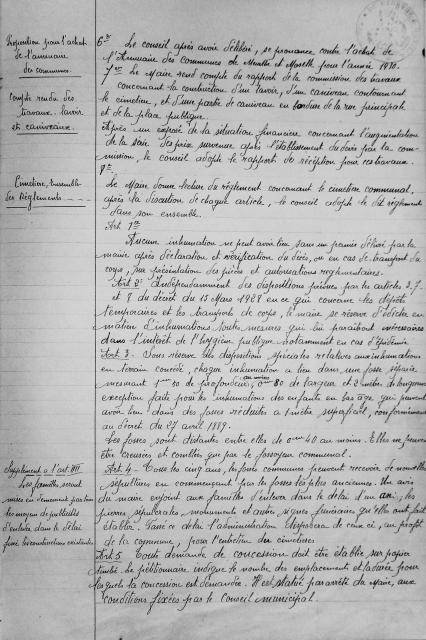 Proposition pour l'achat
de l'annuaire
des communes.
6° Le conseil après avoir délibéré, se prononce contre l'achat de
l'Annuaire des communes de Meurthe et Moselle pour l'année 1930.
Compte rendu des
travaux. lavoir
et caniveaux.
7° Le Maire rend compte du rapport de la commission des travaux
concernant la construction d'un lavoir, d'un caniveau contournant
le cimetière, et d'une partie de caniveau en bordure de la rue principale
et de la place publique.
Après un exposé de la situation financière concernant l'augmentation
de la
des prix survenue après l'établissement du devis par la com-
mission, le conseil adopte le rapport de réception pour ces travaux.
Cimetière, Ensemble
des Règlements
8°
Le Maire donne lecture du règlement concernant le cimetière communal,
après la discution de chaque article, le conseil adopte le dit règlement
dans son ensemble.
Art. 1er
Aucune inhumation ne peut avoir lieu sans un permis délivré par la
mairie après déclaration et vérification du décès, ou en cas de transport du
corps, sur présentation des pièces et autorisations réglementaires.
Art 2° Indépendamment des dispositions prévues par les articles 3, 7
et 8 du décret du 15 Mars 1928 en ce qui concerne les dépôts
temporaires et les transports de corps, le maire se réserve d'édicter en
matière d'inhumations toutes mesures qui lui paraîtront nécessaires
dans l'intérêt de l'hygiène publique notamment en cas d'épidémie.
Art 3. Sous réserve des dispositions spéciales relatives aux inhumations
en terrain concédé, chaque inhumation a lieu dans une fosse séparée
mesurant 1m 50 de profondeur, 0m 80 de largeur et 2 mètres de longueur
exception faite pour les inhumations des enfants en bas âge qui peuvent
avoir lieu dans des fosses réduites à 1 mètre superficiel, conformément
au décret du 27 avril 1889.
Les fosses sont distantes entre elles de 0m 40 au moins. Elles ne peuvent
être creusées et comblées que par le fossoyeur communal.
Supplément à l'art.
Les familles seront
mises en demeure par tous
les moyens de publicités
d'enlever dans le délai
fixé les constructions existantes
Art 4. Tous les cinq ans, les fosses communes peuvent recevoir de nouvelles
sépultures en commençant par les fosses les plus anciennes. Un avis
du maire enjoint aux familles d'enlever dans le délai d'un an, les
pierres sépulcrales, monuments et autres signes funéraires qu'elles ont fait
établir. Passé ce délai l'administration disposera de ceux ci, au profit
de la commune, pour l'entretien du cimetière.
Art 5. Toute demande de concession doit être établie sur papier
timbré. Le pétitionnaire indique le nombre des emplacements et la durée pour
lesquels la concession est demandée. Il est statué par arrêté du Maire, aux
conditions fixées par le Conseil municipal.